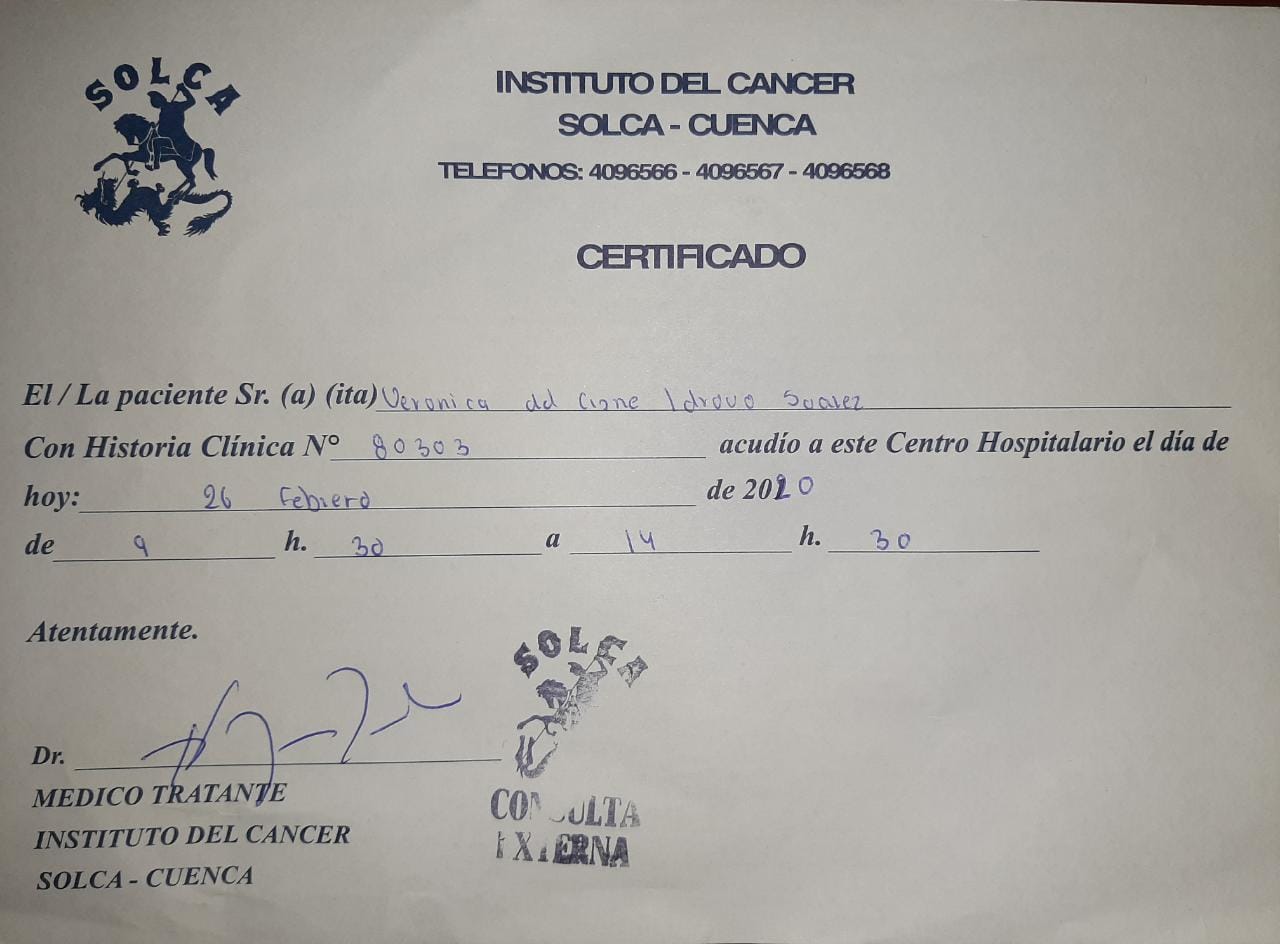 SOLCA
INSTITUTO DEL CANCER
SOLCA - CUENCA
TELEFONOS: 4096566 - 4096567 - 4096568
CERTIFICADO
El / La paciente Sr. (a) (ita) Veronica del Cisne Idrovo Suarez
Con Historia Clínica N° 80303 acudío a este Centro Hospitalario el día de
hoy: 26 Febrero de 2020
de 9 h. 30 a 14 h. 30
Atentamente.
SOLCA
Dr.
MEDICO TRATANTE
INSTITUTO DEL CANCER
SOLCA - CUENCA
CONSULTA
EXTERNA